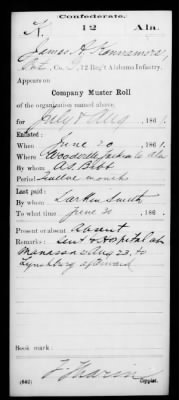 Confederate.
K. 12 Ala.
James A. Kennamore,
Pvt., Co. 12 Reg't Alabama Infantry.
Appears on
Company Muster Roll
of the organization named above,
for July & Aug, 186 .
Enlisted:
When June 20, 186 .
Where Woodville Ala
By whom A.S. Bibb
Period Twelve months
Last paid:
By whom Larkin Smith
To what time June 30, 186 .
Present or absent Absent
Remarks: Sent to Hospital at
Manassas Aug 23, to
Lynchburg afterward
Book mark:
(642) Copyist.